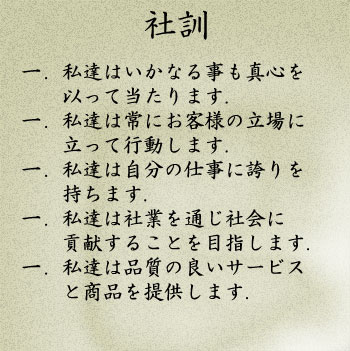 社訓
一. 私達はいかなる事も真心を
以って当たります.
一. 私達は常にお客様の立場に
立って行動します.
一. 私達は自分の仕事に誇りを
持ちます.
一. 私達は社業を通じ社会に
貢献することを目指します.
一. 私達は品質の良いサービス
と商品を提供します.